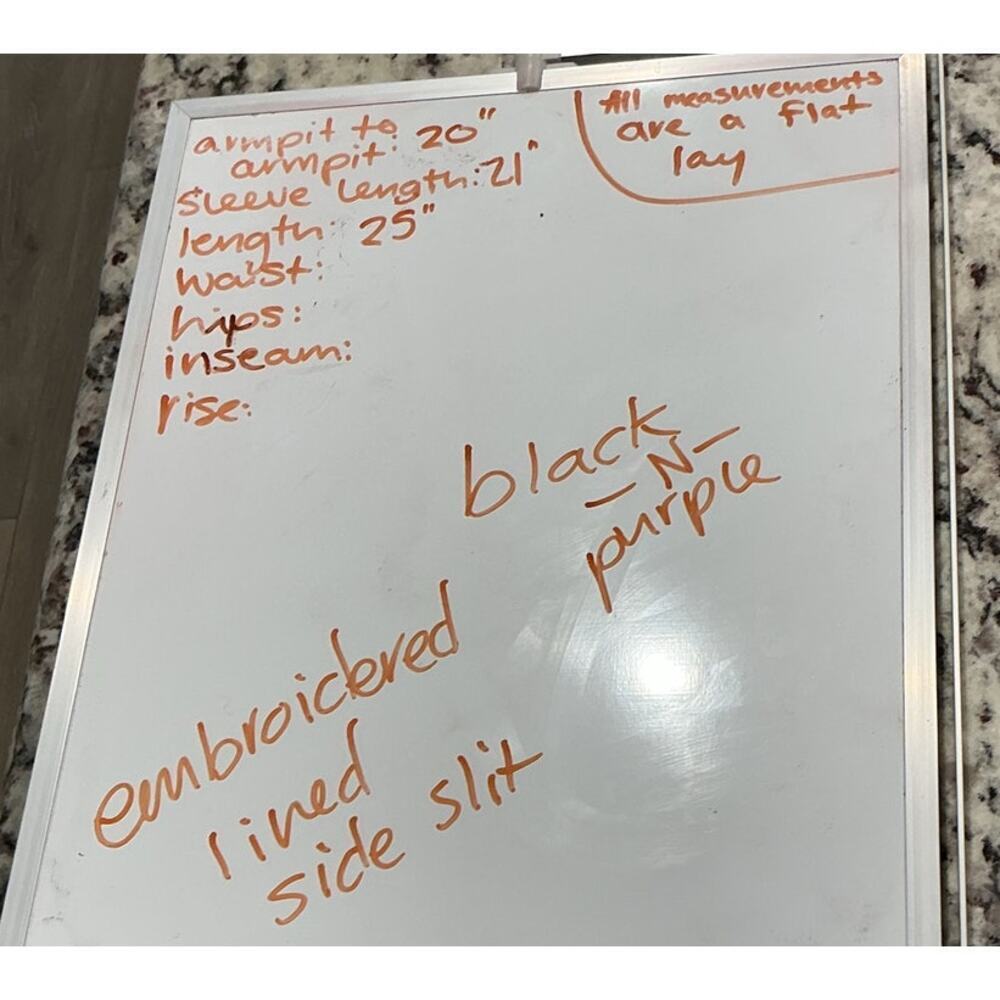 armpit to
armpit: 20"
sleeve length: 21"
length: 25"
waist:
hips:
inseam:
rise:
All measurements
are a flat
lay
black
- N -
purple
embroidered
lined
side slit